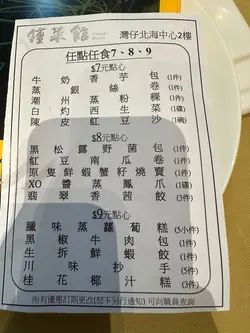 僅菜館
灣仔北海中心2樓
任點任食7、8、9
$7元點心
牛奶香芋包(1件)
蒸銀絲卷(1件)
潮州蒸粉粿(1件)
白灼西生菜(1碟)
陳皮紅豆沙(1碗)
$8元點心
黑松露野菌包(1件)
紅豆南瓜卷(1件)
原隻鮮蝦蟹籽燒賣(1件)
XO醬蒸鳳爪(1碟)
翡翠香茜餃(3件)
$9元點心
臘味蒸蘿蔔糕(5小件)
黑椒牛肉包(1件)
生拆鮮蝦餃(1件)
川味抄手(5件)
桂花椰汁糕(3件)
所有優惠訂期更改(恕不另行通知)可向職員查詢